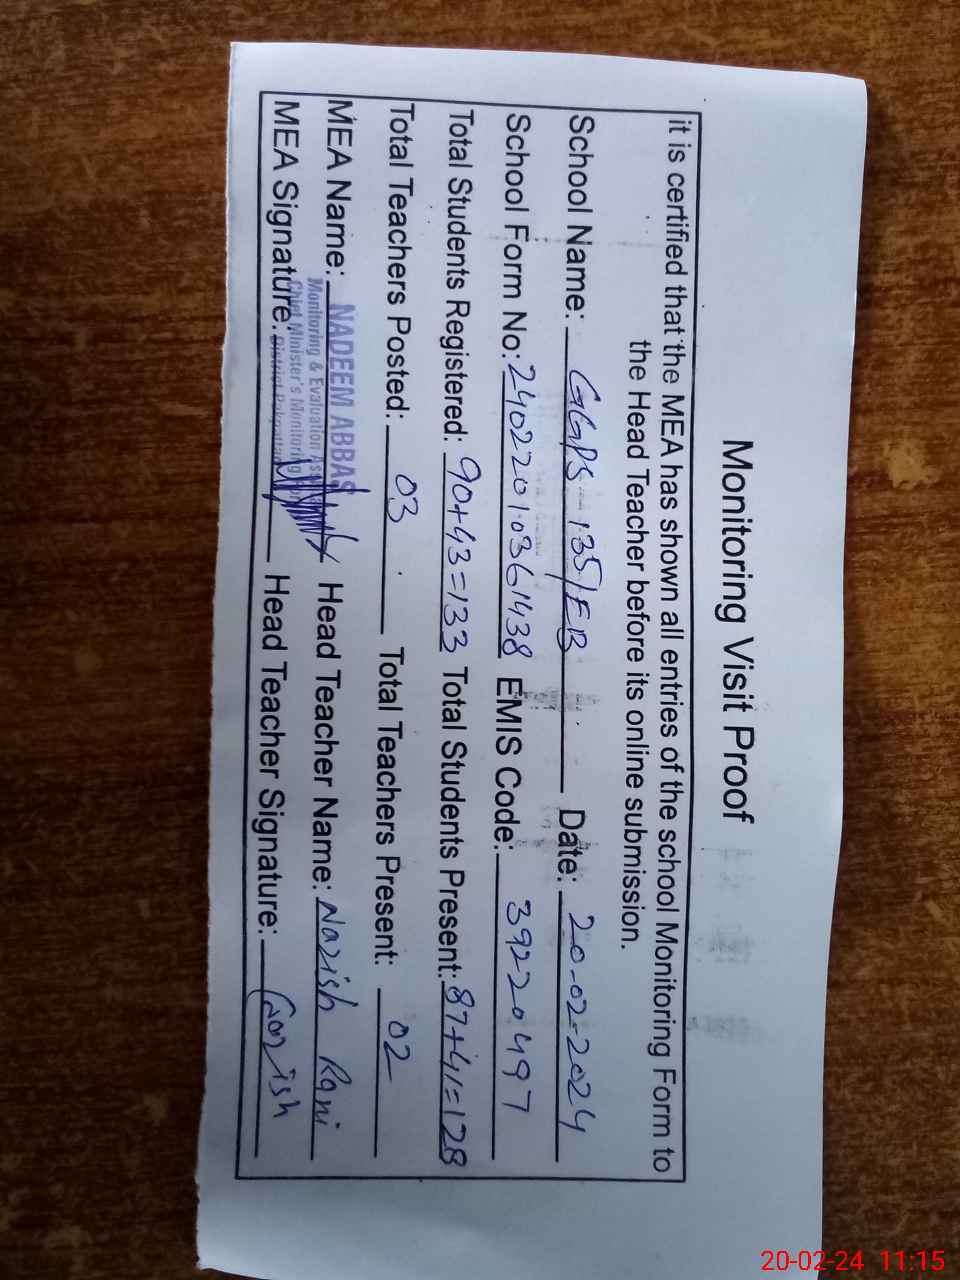 Monitoring Visit Proof
it is certified that the MEA has shown all entries of the school Monitoring Form to
the Head Teacher before its online submission.
School Name: GGPS 135/EB Date: 20-02-2024
School Form No: 24022010361438 EMIS Code: 39220497
Total Students Registered: 90+43=133 Total Students Present: 87+41=128
Total Teachers Posted: 03 Total Teachers Present: 02
MEA Name: NADEEM ABBAS Head Teacher Name: Nazish Rani
Monitoring & Evaluation
Chief Minister's Monitoring
District Pakpattan
MEA Signature: Head Teacher Signature: Nazish
20-02-24 11:15